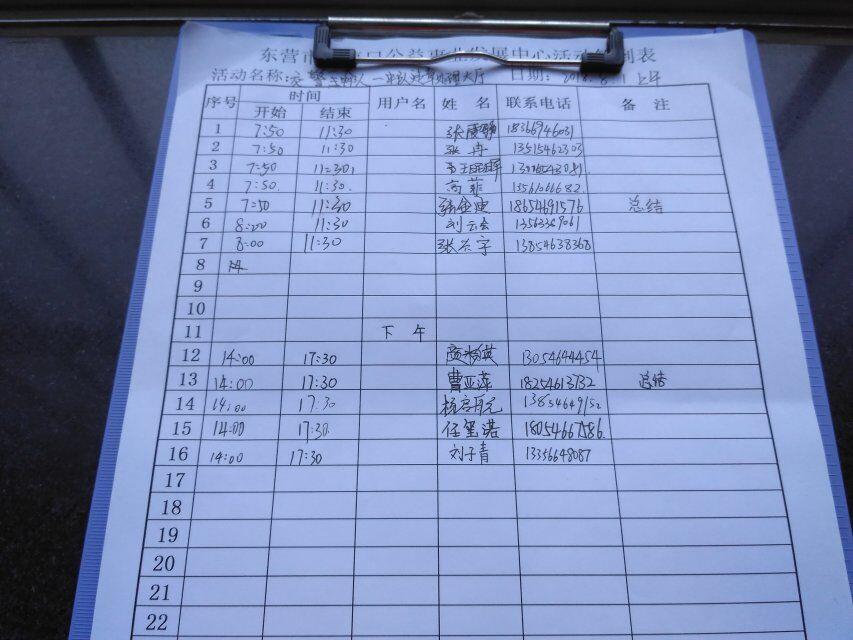 东营市 口公益事业发展中心活动 到表
活动名称: 交警 一 大厅 日期: 2018.8. 上午
序号 时间 用户名 姓 名 联系电话 备 注
开始 结束
1 7:50 11:30 张 18366946031
2 7:50 11:30 张冉 13515462303
3 7:50 11:30
4 7:50 11:30 高菲 13561066682
5 7:50 11:30 18654691576 总结
6 8:00 11:30 刘云会 13563369061
7 8:00 11:30 张兴宇 13854638368
8
9
10
11 下 午
12 14:00 17:30 13054644454
13 14:00 17:30 曹亚萍 18254613732 总结
14 14:00 17:30 杨 13854649152
15 14:00 17:30 任 诺 18054667586
16 14:00 17:30 刘子青 13356648087
17
18
19
20
21
22